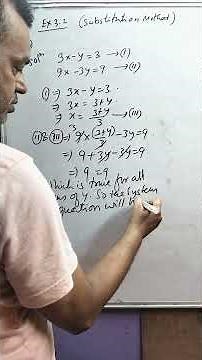 Ex 3.2 (Substitution Method)
Solⁿ 3x-y=3 →(I)
9x-3y=9 →(II)
(I) ⇒ 3x-y=3
⇒ 3x=3+y
⇒ x = (3+y)/3 →(III)
(II)&(III) ⇒ 9x(3+y)/3 -3y=9
⇒ 9+3y-3y=9
⇒ 9=9
Which is true for all
of y. So the system
equation will